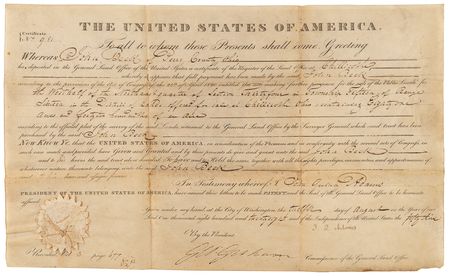 THE UNITED STATES OF AMERICA.
Certificate
To all to whom these Presents shall come, Greeting
WHEREAS John Beck of Ohio
has deposited in the General Land Office of the United States a Certificate of the Register of the Land Office at Chillicothe
whereby it appears that full payment has been made by the said John Beck
according to the provisions of the Act of Congress of the 24th of April 1820 entitled An act making further for the sale of the Public Lands for
the West half of the quarter of Section in Township of Range
in the District of Lands offered for sale at Chillicothe Ohio containing Eighty one
Acres and of an Acre
according to the official plat of the survey of the said Lands returned to the General Land Office by the Surveyor General which said tract has been
purchased by the said John Beck
NOW KNOW YE that the UNITED STATES OF AMERICA, in consideration of the Premises and in conformity with the several acts of Congress in
such case made and provided Have Given and Granted and by these presents Do give and Grant unto the said John Beck
and to his heirs the said tract above described To have and to Hold the same together with all the rights privileges immunities and appurtenances of
whatsoever nature thereunto belonging unto the said John Beck
In Testimony whereof I, John Quincy Adams
PRESIDENT OF THE UNITED STATES OF AMERICA have caused these Letters to be made PATENT and the Seal of the General Land Office to be hereunto
affixed
Given under my hand at the City of Washington the day of August in the Year of our
Lord One thousand eight hundred and and of the Independence of the United States the fifty
By the President
J. Q. Adams
Commissioner of the General Land Office
Recorded Vol 3 page 477